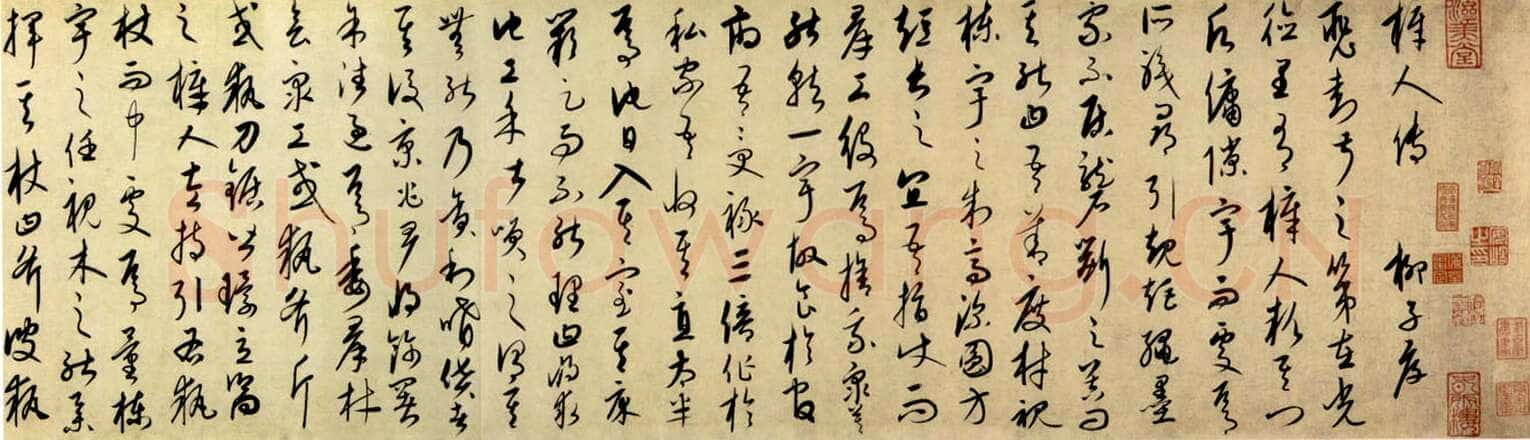 梓人傳 柳子厚
裴封叔之第在光
德里有梓人款其門
願傭隙宇而處焉
所職尋引規矩繩墨
家不居礱斲之器問
其能曰吾善度材視
棟宇之制高深圓方
短長之宜吾指使而
群工役焉捨我衆莫
能就一宇故食於官
府吾受祿三倍作於
私家吾收其直太半
焉他日入其室其床
闕足而不能理曰將求
他工余甚笑之謂其
無能乃貪利嗜貨者
其後京兆尹將飾官署
余往過焉委群材
會衆工或執斧斤
或執刀鋸皆環立嚮
之梓人左持引右執
杖而中處焉量棟
宇之任視木之能舉
揮其杖曰斧彼執
Shufawang.CN